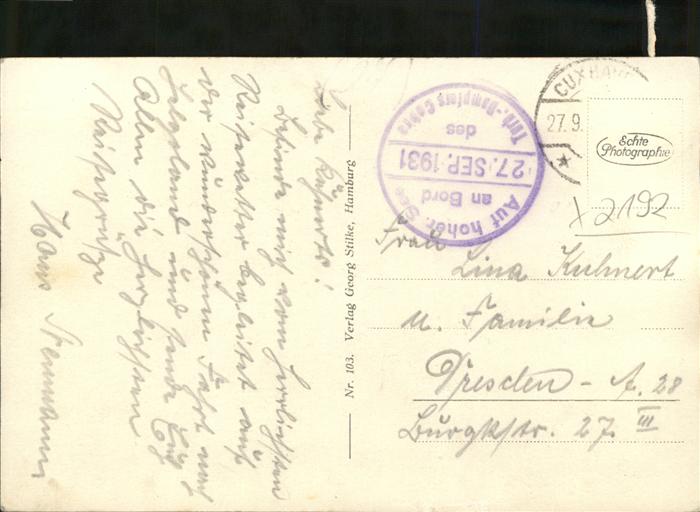 Liebe Kühnerts!
Befinde mich vom herrlichsten
Reisewetter begleitet auf
der wunderschönen Fahrt nach
Helgoland und sende Euch
Allen die herzlichsten
Reisegrüße
Hans
Nr. 103. Verlag Georg Stilke, Hamburg
Auf hoher See
an Bord
27. SEP. 1931
des
Turb.-Dampfers Cobra
CUXHAV
27.9.
Echte
Photographie
x 2192
Frau
Lina Kuhnert
u. Familie
Dresden - A. 28
Burgkstr. 27. III